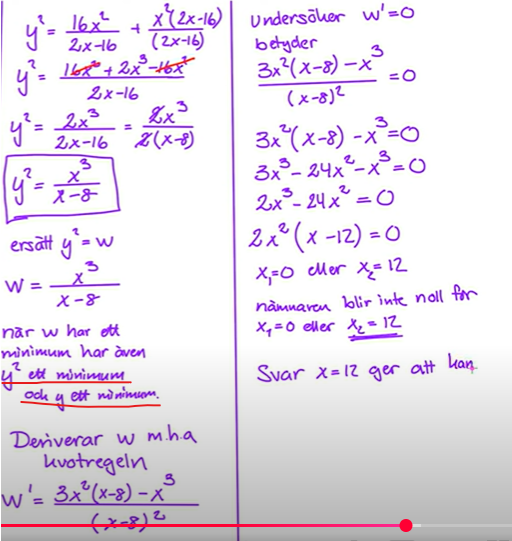 y² = 16x²/(2x-16) + x²(2x-16)/(2x-16)
y² = (16x² + 2x³ - 16x²)/(2x-16)
y² = 2x³/(2x-16) = 2x³/(2(x-8))
y² = x³/(x-8)
ersätt y² = w
w = x³/(x-8)
när w har ett
minimum har även
y² ett minimum
och y ett minimum.
Deriverar w m.h.a
kvotregeln
w' = (3x²(x-8) - x³)/(x-8)²
Undersöker w' = 0
betyder
(3x²(x-8) - x³)/(x-8)² = 0
3x²(x-8) - x³ = 0
3x³ - 24x² - x³ = 0
2x³ - 24x² = 0
2x²(x-12) = 0
x₁ = 0 eller x₂ = 12
nämnaren blir inte noll för
x₁ = 0 eller x₂ = 12
Svar x = 12 ger att kan